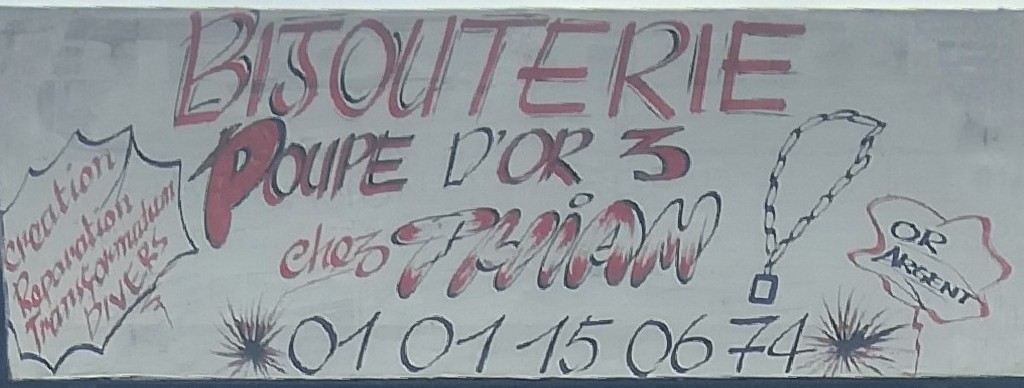 BIJOUTERIE
POUPE D'OR 3
chez THIAM
Création
Reparation
Transformation
DIVERS
OR
ARGENT
01 01 15 06 74